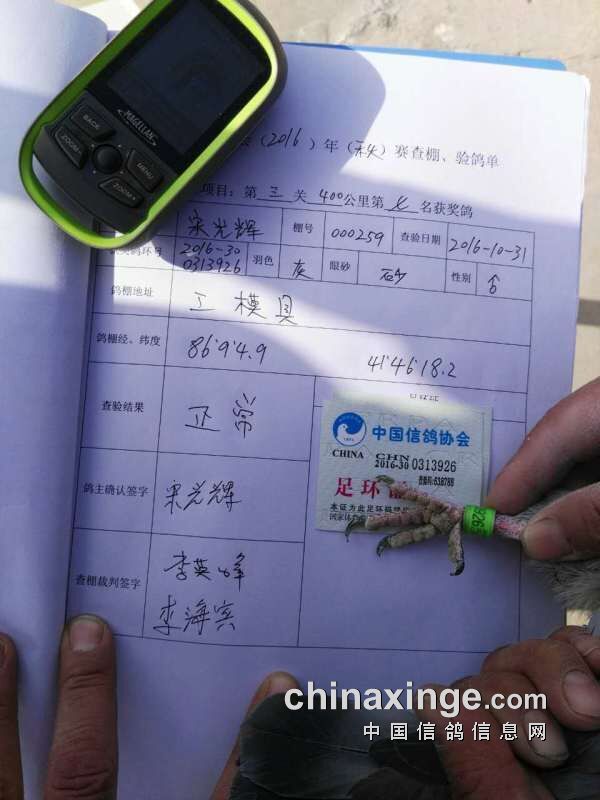 MAGELLAN
BACK
MENU
ZOOM-
ZOOM+
(2016)年(秋)赛查棚、验鸽单
项目:第三关400公里第七名获奖鸽
宋光辉 棚号 000259 查验日期 2016-10-31
2016-30
0313926 羽色 灰 眼砂 砂 性别 ♂
鸽棚地址 工模具
鸽棚经、纬度 86°9'4.9 41°46'18.2
查验结果 正常
中国信鸽协会
CHINA CHN
2016-30 0313926
足环
本证为此足环
鸽主确认签字 宋光辉
查棚裁判签字 李英峰
李海宾
chinaxinge.com
中国信鸽信息网